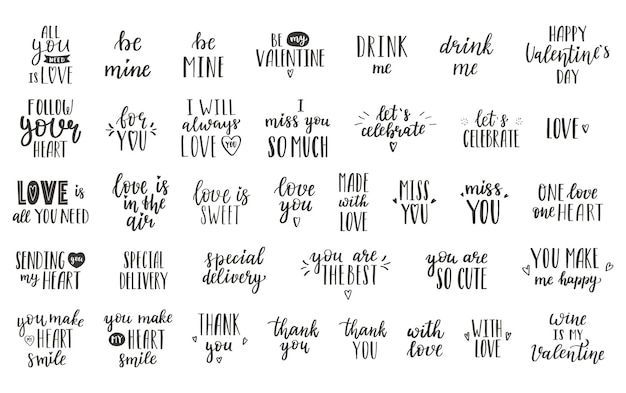 ALL
YOU
NEED
IS LOVE
be
mine
be
MINE
BE my
VALENTINE
DRINK
me
drink
me
HAPPY
Valentine's
DAY
FOLLOW
your
HEART
for
YOU
I WILL
always
LOVE YOU
I
miss you
SO MUCH
let's
celebrate
let's
CELEBRATE
LOVE
LOVE is
all YOU NEED
love is
in the
air
love is
SWEET
love
you
MADE
with
LOVE
MISS
YOU
miss
YOU
ONE love
one HEART
SENDING you
my HEART
SPECIAL
DELIVERY
special
delivery
you are
THE BEST
you are
SO CUTE
YOU MAKE
me happy
you make
HEART
smile
you make
MY HEART
smile
THANK
you
thank
you
thank
YOU
with
love
WITH
LOVE
wine
IS MY
Valentine